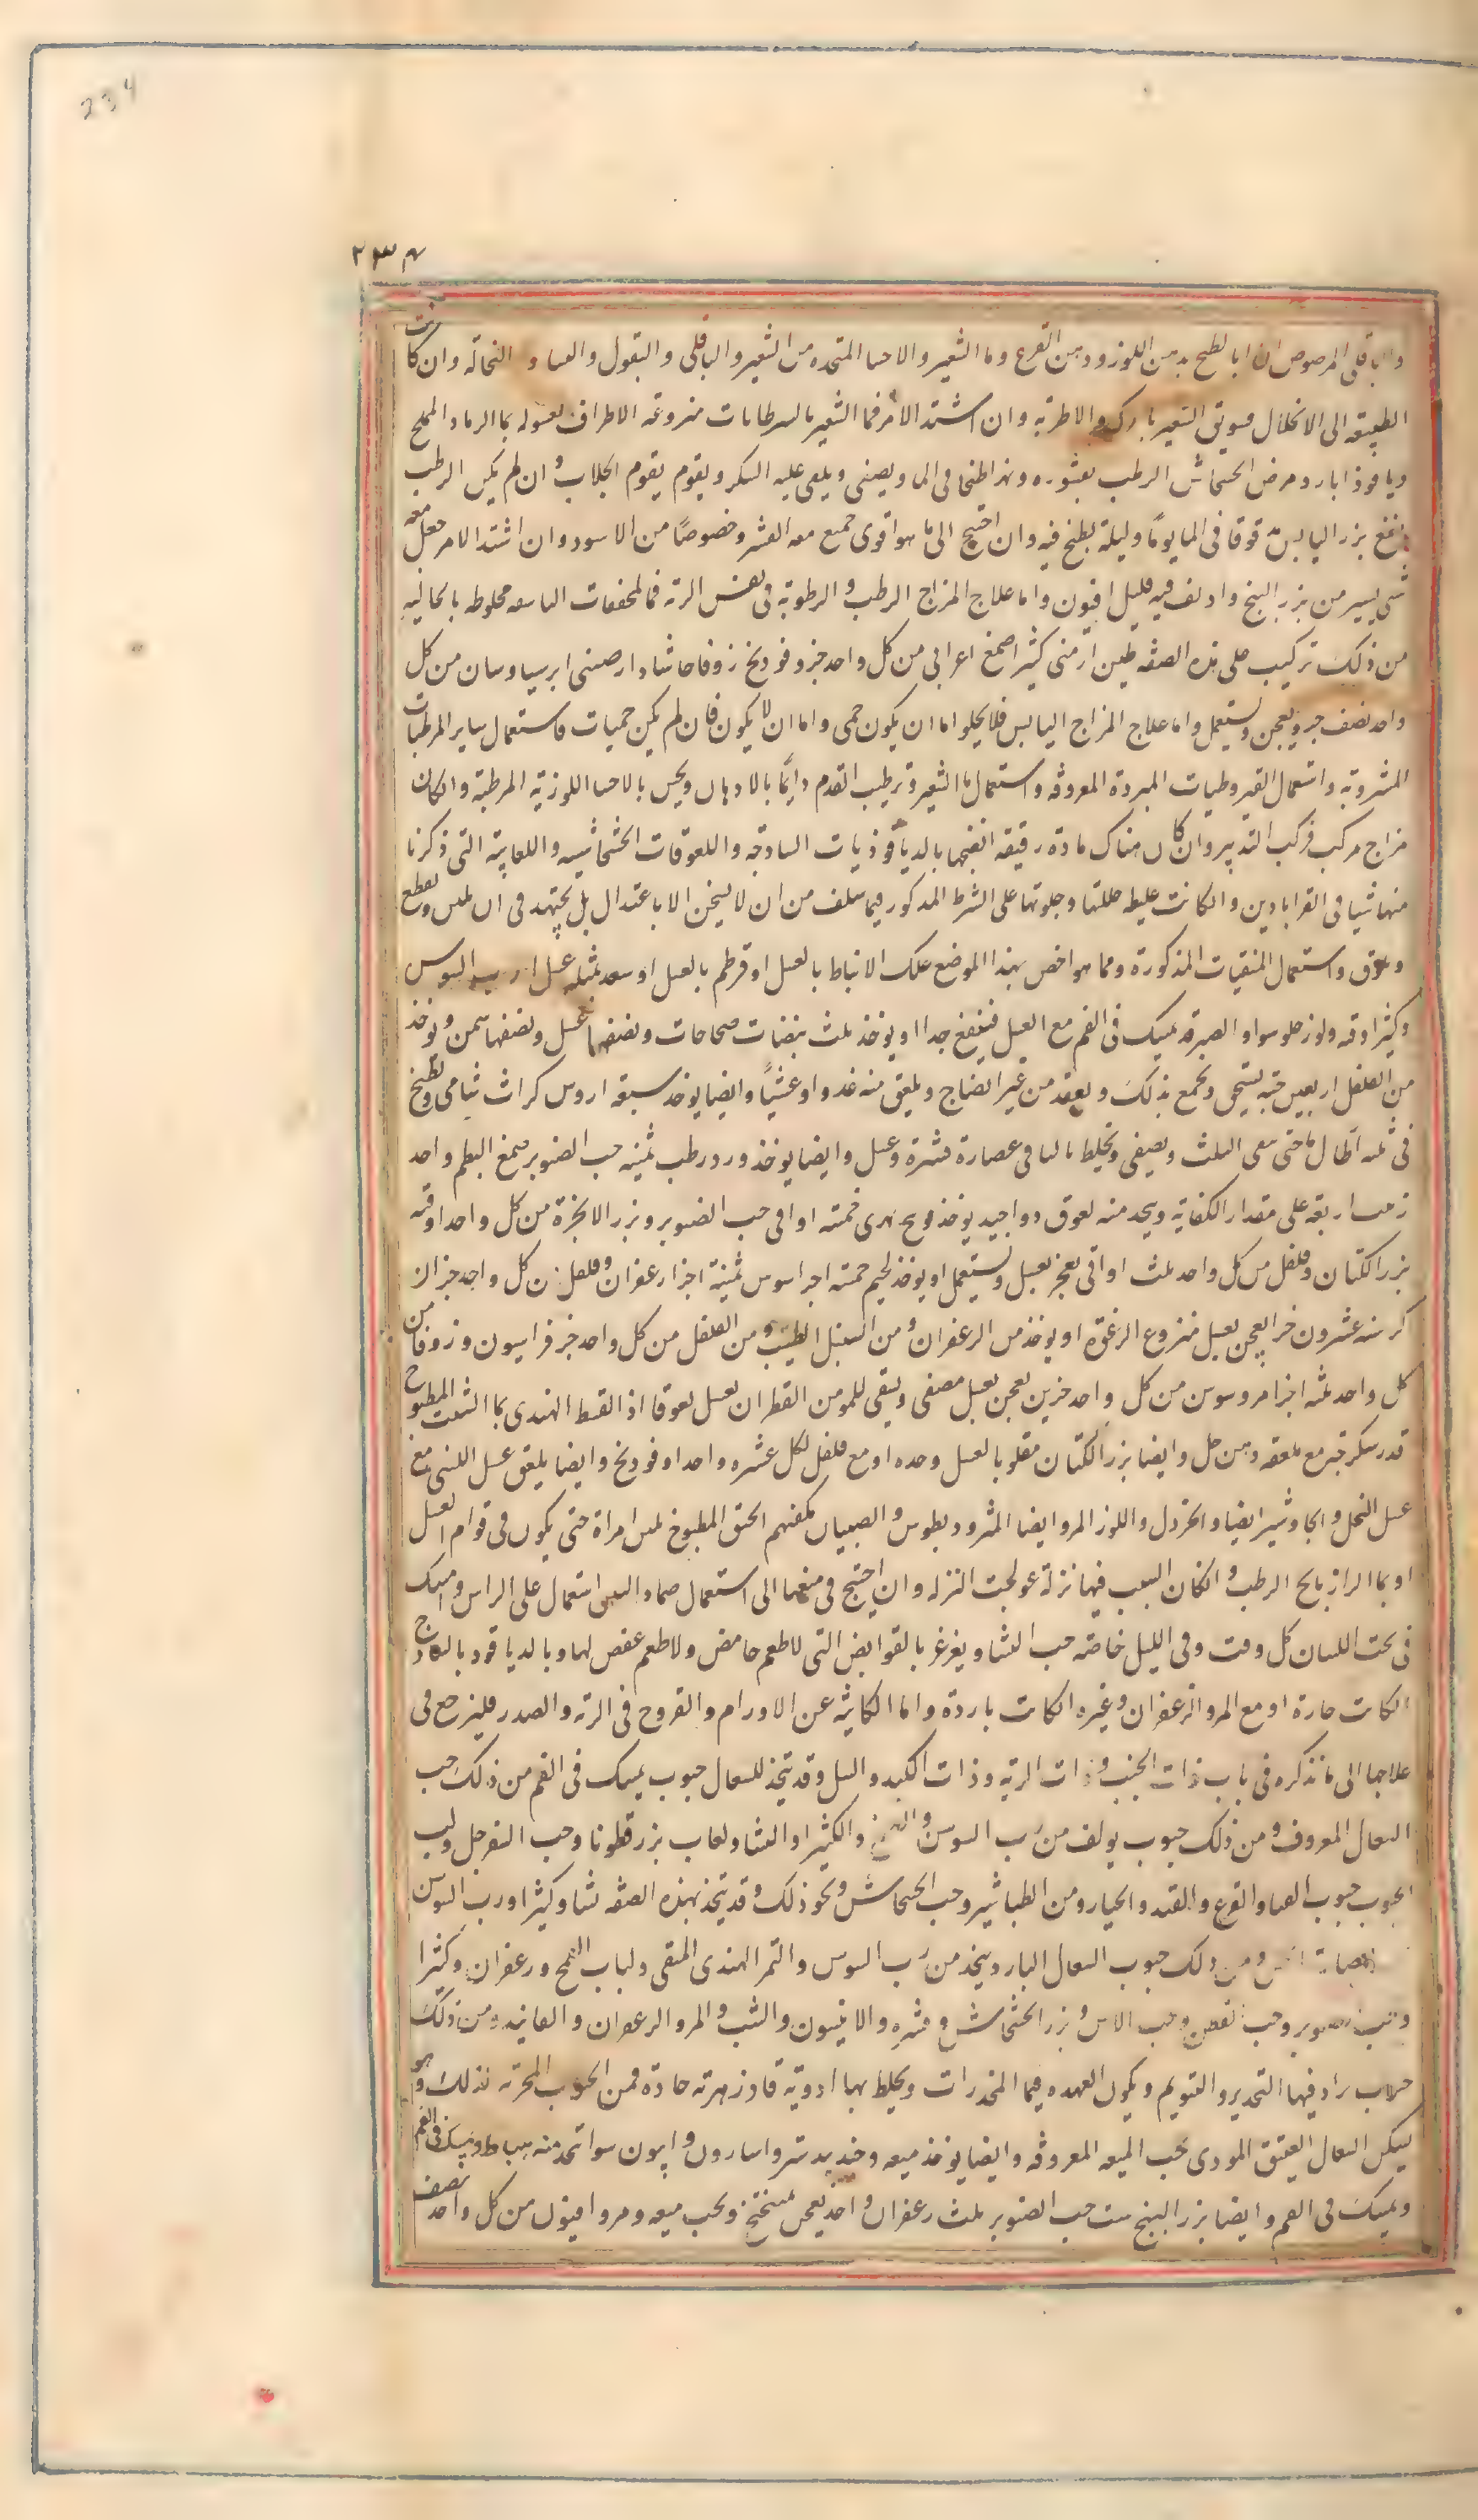 234
٢٣٤
والباقلى المرضوض ان ابا لطبخ بدهن اللوز ودهن القرع وما الشعير والاحسا المتخذه من الشعير والباقلى والبقول والنخالة وان كانت
الطبيعة الى الانحلال فسويق الشعير والاطرية وان اشتد الامر فما الشعير بالسرطانات منزوعة الاطراف مغسوله بما الرماد والملح
وديا قوذا بارد ومرض الخشخاش الرطب بقشوره وهذا طبخا فى الما ويصفى ويلقى عليه السكر ويقوم يقوم الجلاب وان لم يكن الرطب
ينقع بزر اليابس مدقوقا فى الما يوما وليلة يطبخ فيه وان احتيج الى ما هو اقوى جمع معه القشر وخصوصًا من الاسود وان اشتد الامر جعل معه
شى يسير من بزر البنج واديف فيه قليل افيون واما علاج المزاج الرطب والرطوبة فى نفس الرئة فالمجففات اليابسه مخلوطه بالجاليه
من ذلك تركيب على هذه الصفه طين ارمنى كثيرا صمغ اعرابى من كل واحد جزو فودنج زوفا حاشا دارصينى ايرسا من كل
واحد نصف جزو يعجن ويستعمل واما علاج المزاج اليابس فلا يخلو اما ان يكون حمى واما ان لا يكون فان لم يكن حميات فاستعمال ساير المرطبات
المشروبة واستعمال القيروطيات المبردة المعروفه واستعمال ما الشعير وترطيب القدم دايمًا بالادهان بالاحسا اللوزية المرطبة وان كان
مزاج مركب فركب التدبير وان كان هناك مادة رقيقه انضجها بالدياقوذيات الساذجه واللعوقات الخشخاشيه واللعابية التى ذكرنا
منها شيا فى القرابادين وان كانت غليظه حللتها وجلوتها على الشرط المذكور فيما سلف من ان لا يسخن الا باعتدال بل يجتهد فى ان تلين وتقطع
وتزلق واستعمال المنقيات المذكورة ومما هو اخص بهذا الموضع علك الانباط بالعسل او قرطم بالعسل او سعد بمثله عسل او رب السوس
وكثيرا وقنه ولوز حلو سوا والصبر قد يمسك فى الفم مع العسل فينفع جدا او يوخذ ثلث بيضات صحاحات ونصفها عسل ونصفها سمن ويوخذ
من الفلفل اربعين حبة يستحق ويجمع بذلك ويعقد من غير انضاج ويلعق منه غدوا وعشيًا وايضا يوخذ سبعة اروس كراث شامى ويطبخ
فى ثلثه ارطال ما حتى يبقى الثلث ويصفى ويخلط بالباقى عصارة قشره وعسل وايضا يوخذ ورد رطب ثمنيه حب الصنوبر صمغ البطم واحد
زبيب اربعة على مقدار الكفاية ويتخذ منه لعوق دوا جيد يوخذ فودنج نهرى خمسه اواقى حب الصنوبر وبزر الانجرة من كل واحد اوقيه
بزر الكتان وفلفل من كل واحد ثلث اواقى يعجن بعسل ويستعمل او يوخذ لحيم خمسه اجزا سوس ثمنية اجزا زعفران وفلفل من كل واحد جز الز
كرسنه عشرون جزا يعجن بعسل منزوع الرغوة او يوخذ من الزعفران ومن السنبل الطيب ومن الفلفل من كل واحد جز فراسيون وزوفا من
كل واحد ثلثه اجزا مر وسوس من كل واحد جزين يعجن بعسل مصفى ويسقى للمومن القطران بعسل لعوقا اذ القسط الهندى بما الشبت المطبوخ
قدر سكرجة مع ملعقه دهن خل وايضا بزر الكتان مقلو بالعسل وحده او مع فلفل لكل عشره واحد او فودنج وايضا يلعق عسل اللبنى مع
عسل النحل والجاوشير ايضا والخردل واللوز المر وايضا المثروديطوس والصبيان يكفيهم الحبق المطبوخ بلبن امراة حتى يكون فى قوام العسل
او بما الرازيانج الرطب وان كان السبب فيها نزلة عولجت النزله وان احتيج فى منعها الى استعمال ضماد التين استعمال على الراس وامسك
فى تحت اللسان كل وقت وفى الليل خاصة حب النشا ويغرغر بالقوابض التى لا طعم حامض ولا طعم عفص لها وبالدياقود بالساذج
ان كانت حارة او مع المر والزعفران وغيره ان كانت باردة واما الكاينه عن الاورام والقروح فى الرئة والصدر فليرجع فى
علاجها الى ما نذكره فى باب ذات الجنب وذات الرية وذات الكبد والسل وقد يتخذ للسعال حبوب يمسك فى الفم من ذلك حب
السعال المعروف ومن ذلك حبوب يولف من رب السوس والصمغ والكثيرا والنشا ولعاب بزر قطونا وحب السفرجل ولب
الحبوب حبوب القثا والقرع والقند والخيار ومن الطباشير وحب الخشخاش ونحو ذلك وقد يتخذ بهذه الصفه نشا وكثيرا ورب السوس
ومن ذلك حبوب السعال البارد يتخذ من رب السوس والتمر الهندى المنقى ولباب القمح وزعفران وكثيرا
وحب صنوبر وحب القطن وحب الاس وبزر الخشخاش وقشره والانيسون والشب والمر والزعفران والفانيد ومن ذلك
حبوب يراد فيها التخدير والتنويم ويكون العمده فيها المخدرات ويخلط بها ادوية قاذ زهرته حادة فمن الحبوب المجربه لذلك وهو
يسكن السعال العتيق الموذى حب الميعه المعروفه وايضا يوخذ ميعه وجندبيدستر واسارون وافيون سوا يتخذ منه حبا ويمسك فى الفم
ويمسك فى الفم وايضا بزر البنج ست حب الصنوبر ثلث زعفران واحد يعجن بميبختج ويحبب ميعه ومر وافيون من كل واحد نصف